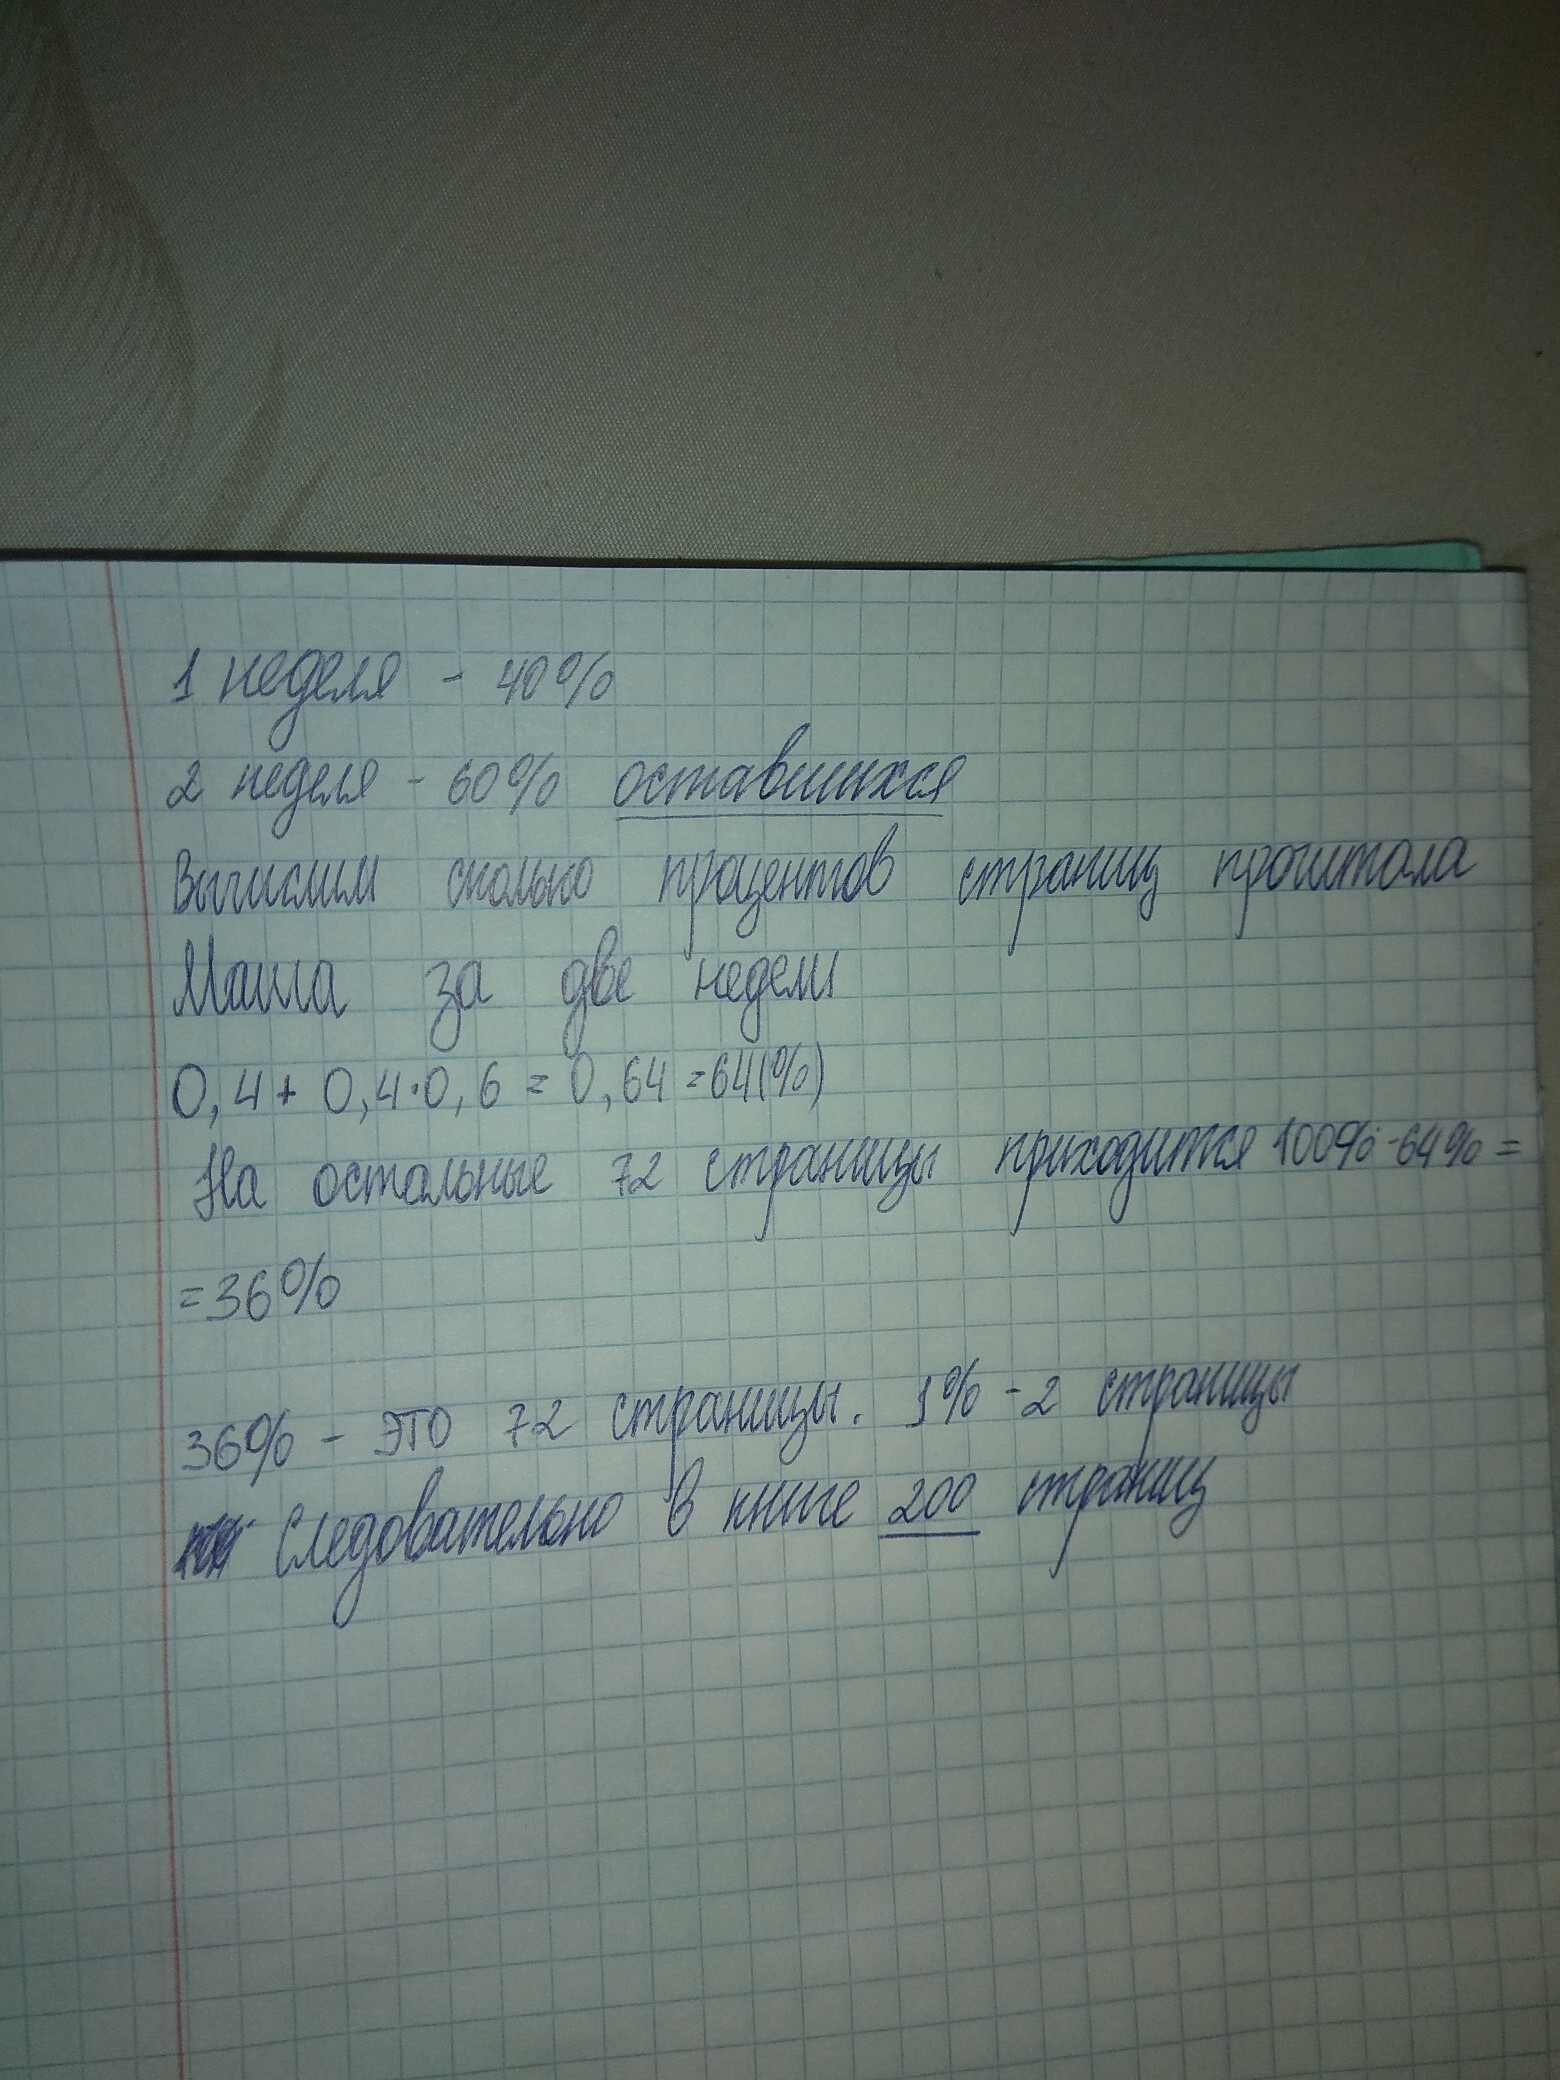 1 неделя - 40%
2 неделя - 60% оставшихся
Вычислим сколько процентов страниц прочитала
Маша за две недели
0,4 + 0,4·0,6 = 0,64 = 64(%)
На остальные 72 страницы приходится 100% - 64% =
= 36%
36% - это 72 страницы. 1% - 2 страницы
Следовательно в книге 200 страниц